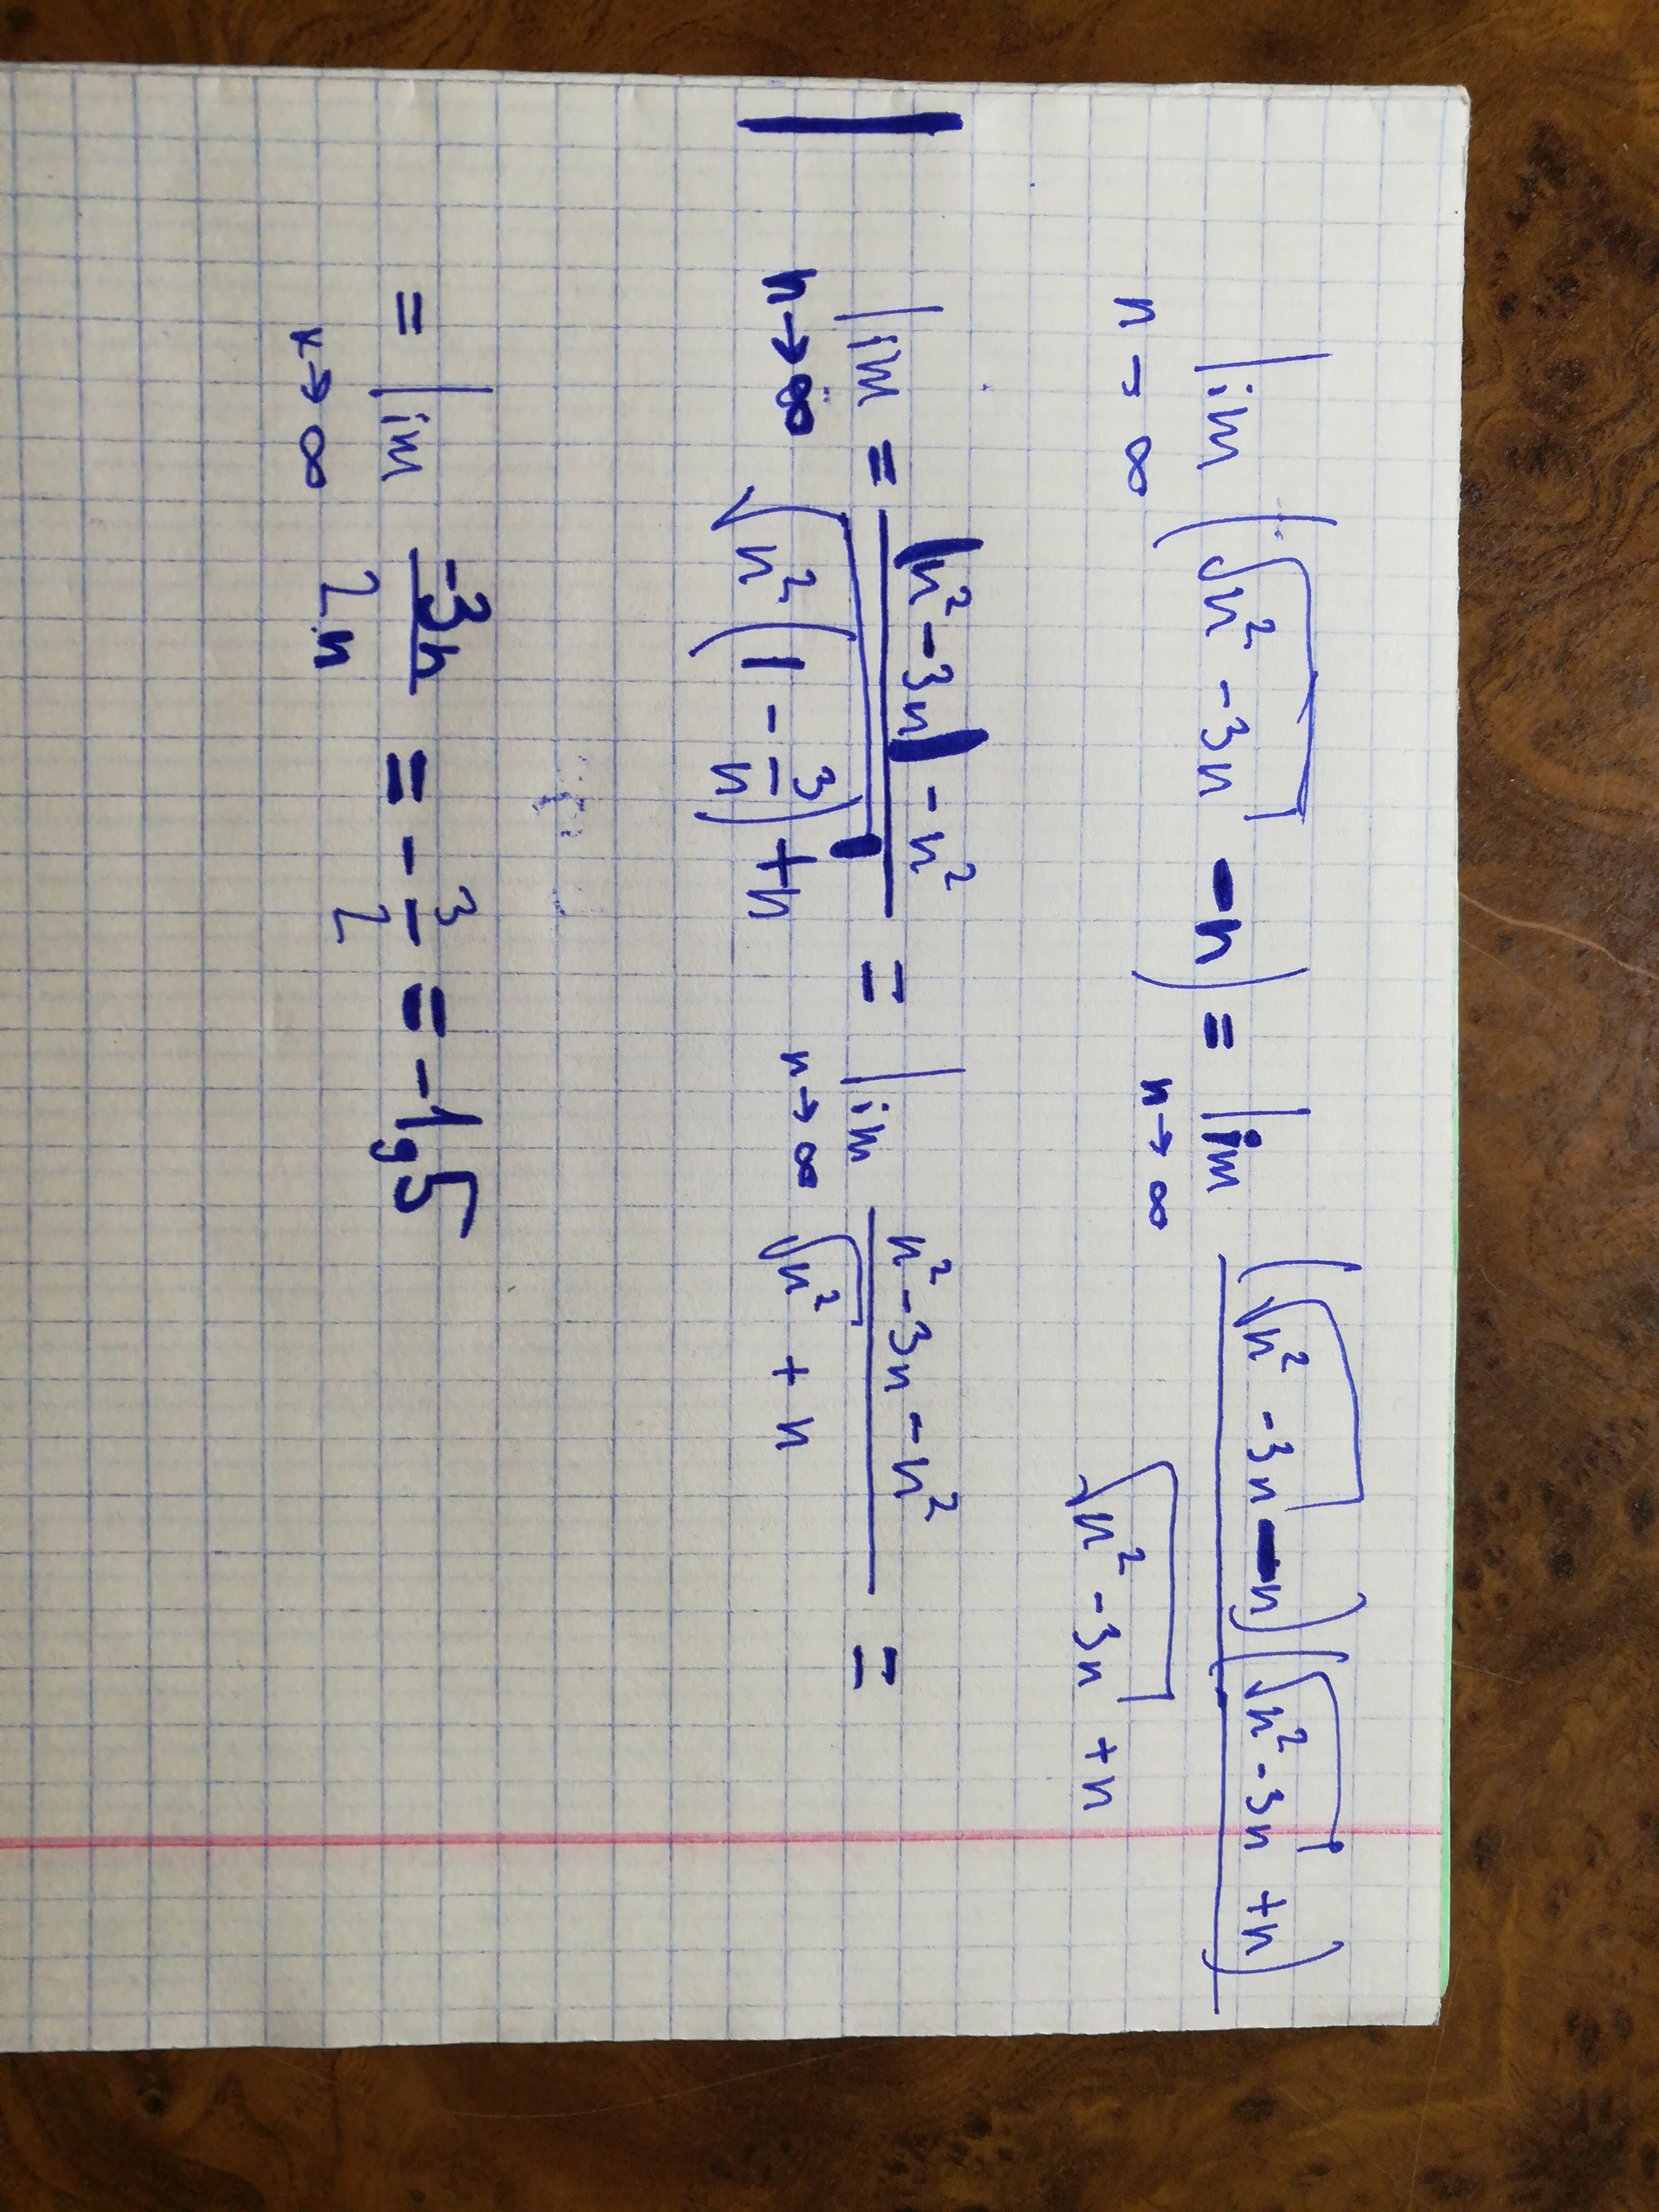 lim n→∞ (√(n² - 3n) - n) = lim n→∞ ((√(n² - 3n) - n)(√(n² - 3n) + n)) / (√(n² - 3n) + n)
lim n→∞ = ((n² - 3n) - n²) / (√(n²(1 - 3/n)) + n) = lim n→∞ (n² - 3n - n²) / (√n² + n) =
= lim n→∞ -3n / 2n = - 3/2 = -1,5